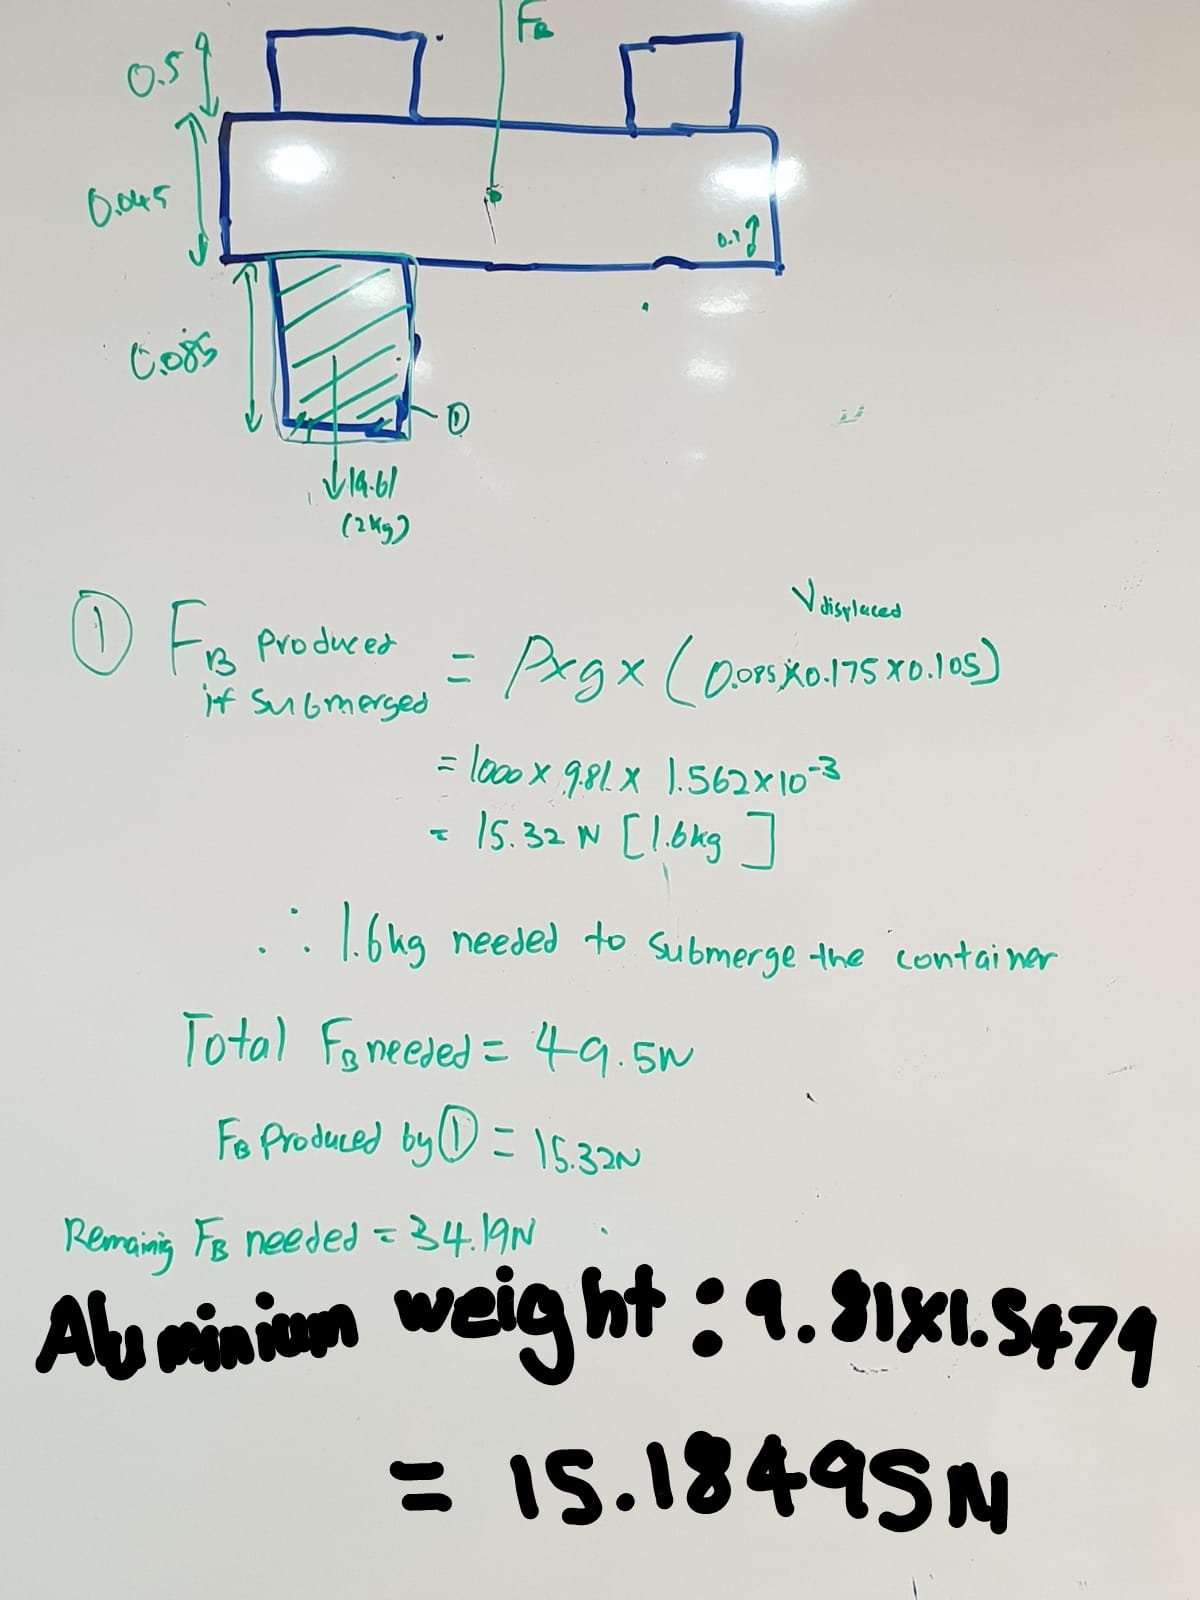 F_B
0.5
0.045
0.1
0.085
①
19.61
(2kg)
V displaced
① F_B produced if submerged = ρxgx(0.085x0.175x0.105)
= 1000 x 9.81 x 1.562x10^-3
= 15.32 N [1.6kg]
∴ 1.6kg needed to submerge the container
Total F_B needed = 49.5N
F_B Produced by ① = 15.32N
Remainig F_B needed = 34.19N
Aluminium weight : 9.81x1.5479
= 15.18495N